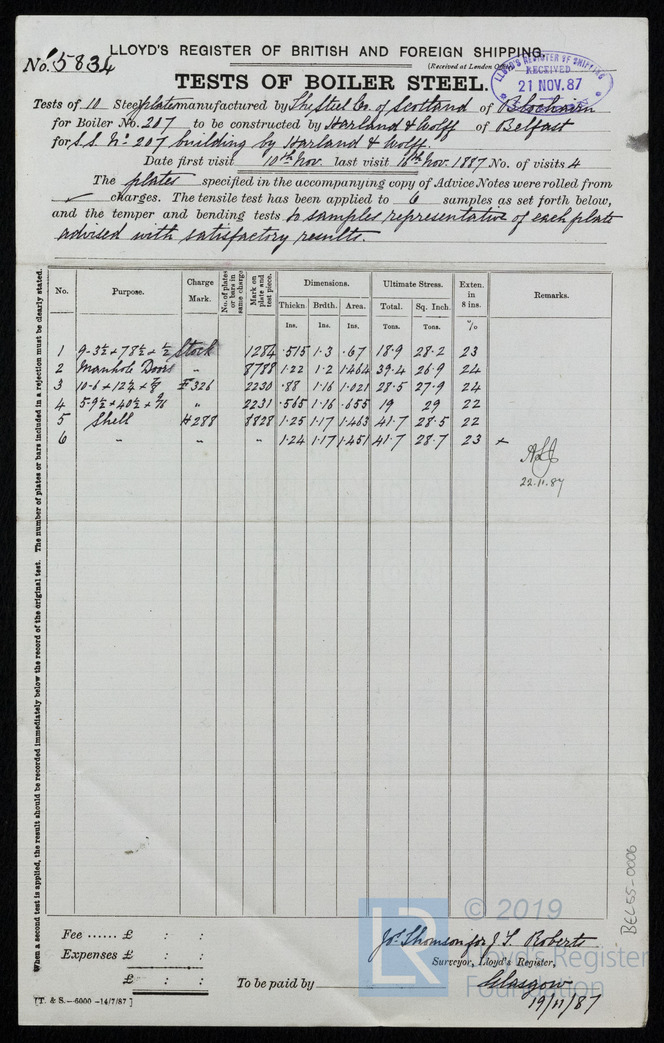 LLOYD'S REGISTER OF BRITISH AND FOREIGN SHIPPING.
No. 5834
(Received at London Office
LLOYD'S REGISTER OF SHIPPING
RECEIVED
21 NOV.87
TESTS OF BOILER STEEL.
Tests of 10 Steel plates manufactured by The Steel Co. of Scotland of Blochairn
for Boiler No. 207 to be constructed by Harland & Wolff of Belfast
for S.S. No 207 building by Harland & Wolff.
Date first visit 10th Nov. last visit 16th Nov. 1887 No. of visits 4
The plates specified in the accompanying copy of Advice Notes were rolled from
charges. The tensile test has been applied to 6 samples as set forth below,
and the temper and bending tests to samples representative of each plate
advised with satisfactory results.
When a second test is applied, the result should be recorded immediately below the record of the original test. The number of plates or bars included in a rejection must be clearly stated.
No. Purpose. Charge Mark. No. of plates or bars in same charge Mark on plate and test piece. Dimensions. Ultimate Stress. Exten. in 8 ins. Remarks.
Thickn. Brdth. Area. Total. Sq. Inch.
Ins. Ins. Ins. Tons. Tons. %
1 9-3½ + 78½ + ½ Stock 1284 .515 1.3 .67 18.9 28.2 23
2 Manhole Doors " 8788 1.22 1.2 1.464 39.4 26.9 24
3 10-6 + 12¼ + ⅞ 326 2230 .88 1.16 1.021 28.5 27.9 24
4 5-9½ + 40½ + 9/16 " 2231 .565 1.16 .655 19 29 22
5 Shell H 288 8828 1.25 1.17 1.463 41.7 28.5 22
6 " " " 1.24 1.17 1.451 41.7 28.7 23 +
22.11.87
BEL55-0006
Fee ...... £ : :
Expenses £ : :
£ : :
To be paid by
Jos. Thomson for J. S. Roberts
Surveyor, Lloyd's Register,
Glasgow
19/11/87
[T. & S.—6000 -14/7/87]
LR
© 2019
Lloyd's Register
Foundation